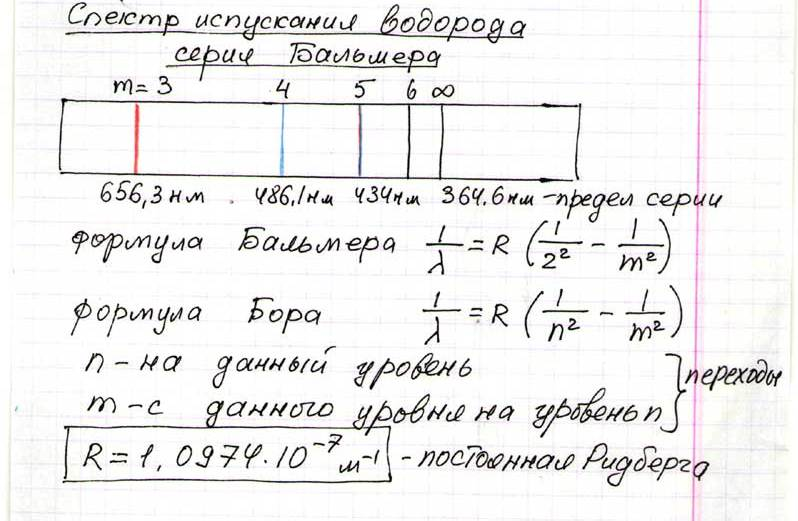 Спектр испускания водорода
серия Бальмера
m= 3 4 5 6 ∞
656,3 нм . 486,1 нм 434 нм 364.6 нм - предел серии
формула Бальмера 1/λ = R (1/2² - 1/m²)
формула Бора 1/λ = R (1/n² - 1/m²)
n - на данный уровень
m - с данного уровня на уровень n } переходы
R = 1,0974·10⁻⁷ м⁻¹ - постоянная Ридберга